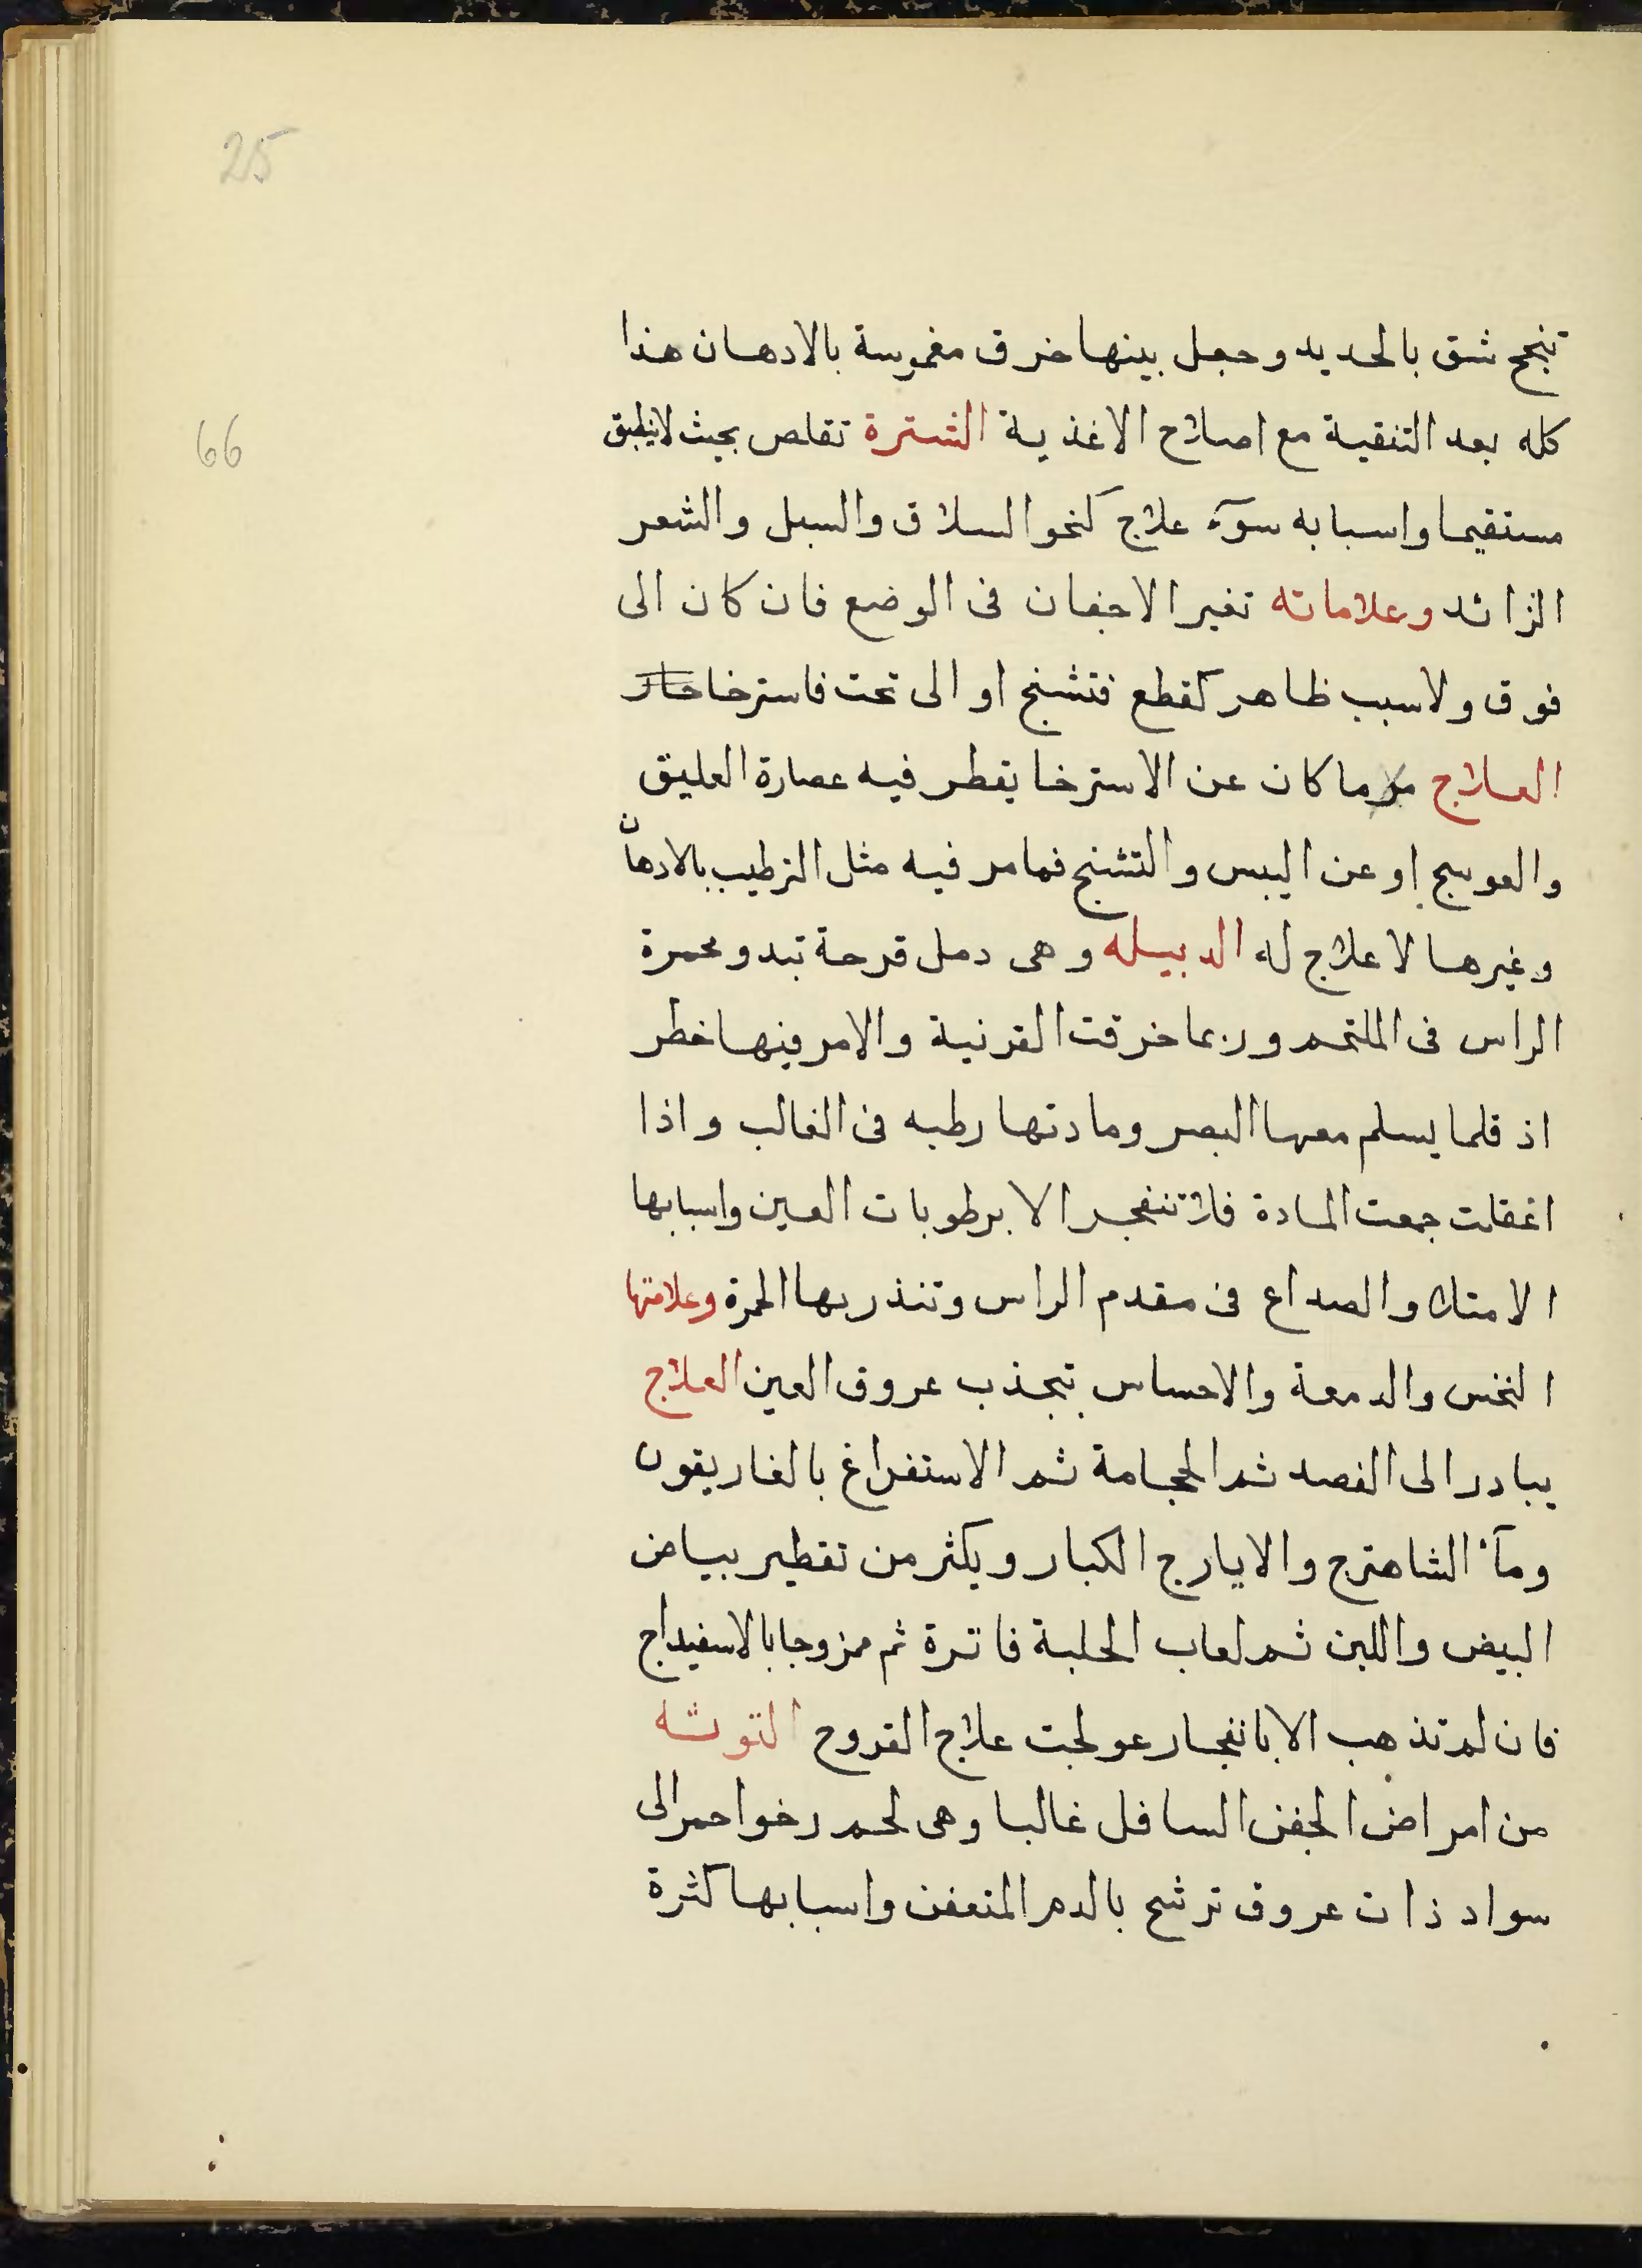 25
تنجح شق بالحديد وجعل بينها خرق مغموسة بالادهان هذا
66
كله بعد التنقية مع اصلاح الاغذية الشترة تقلص بحيث لاينطبق
مستقيما واسبابه سوٓء علاج كنحو السلاق والسبل والشعر
الزائد وعلاماته تغير الاجفان فى الوضع فان كان الى
فوق ولا سبب ظاهر كقطع فتشنج او الى تحت فاسترخا
العلاج ما كان عن الاسترخا يقطر فيه عصارة العليق
والعوسج او عن اليبس والتشنج فما مر فيه مثل الترطيب بالادهان
وغيرها لا علاج له الدبيله وهى دمل قرحة تبدو محمرة
الراس فى الملتحم وربما خرقت القرنية والامر فيها خطر
اذ قلما يسلم معها البصر ومادتها رطبه فى الغالب واذا
اغفلت جمعت المادة فلا تنفجر الا برطوبات العين واسبابها
الامتلا والصداع فى مقدم الراس وتنذر بها الحمرة وعلامتها
النخس والدمعة والاحساس بتجذب عروق العين العلاج
يبادر الى الفصد ثم الحجامة ثم الاستفراغ بالغاريقون
ومآء الشاهترج والايارج الكبار ويكثر من تقطير بياض
البيض واللبن ثم لعاب الحلبة فاترة ثم ممزوجا بالاسفيداج
فان لم تذهب الا بانفجار عولجت علاج القروح التوثه
من امراض الجفن السافل غالبا وهى لحم رخو احمر الى
سواد ذات عروق ترشح بالدم المتعفن واسبابها كثرة